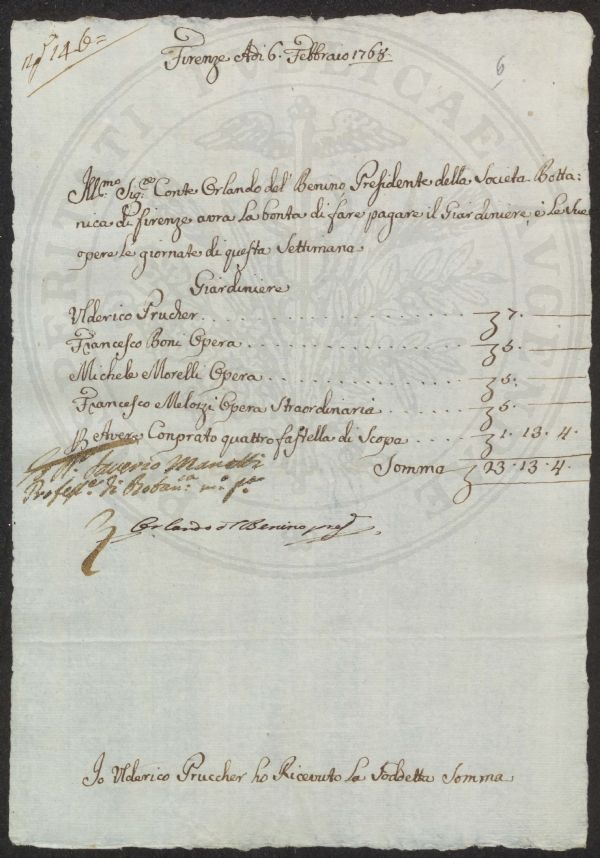 n.° 146=
Firenze Adi 6. Febbraio 1768.
6
Ill:mo Sig:re Conte Orlando del Benino Presidente della Societa Botta=
nica di firenze avra la bonta di fare pagare il Giardiniere, e Le Sue
opere le giornate di questa Settimana
Giardiniere
Ulderico Prucher . . . . . . . . . . £ 7.
Francesco Boni Opera . . . . . . . . . . £ 5.
Michele Morelli Opera . . . . . . . . . . £ 5.
Francesco Meloizi Opera Straordinaria . . . . . £ 5.
P Avere Conprato quattro fastella di Scopa . . . £ 1. 13. 4.
Somma £ 23. 13. 4.
Saverio Manetti
Profess:re di Botan:ca
Orlando del Benino pres
Io Ulderico Pruccher ho Ricevuto La Soddetta Somma